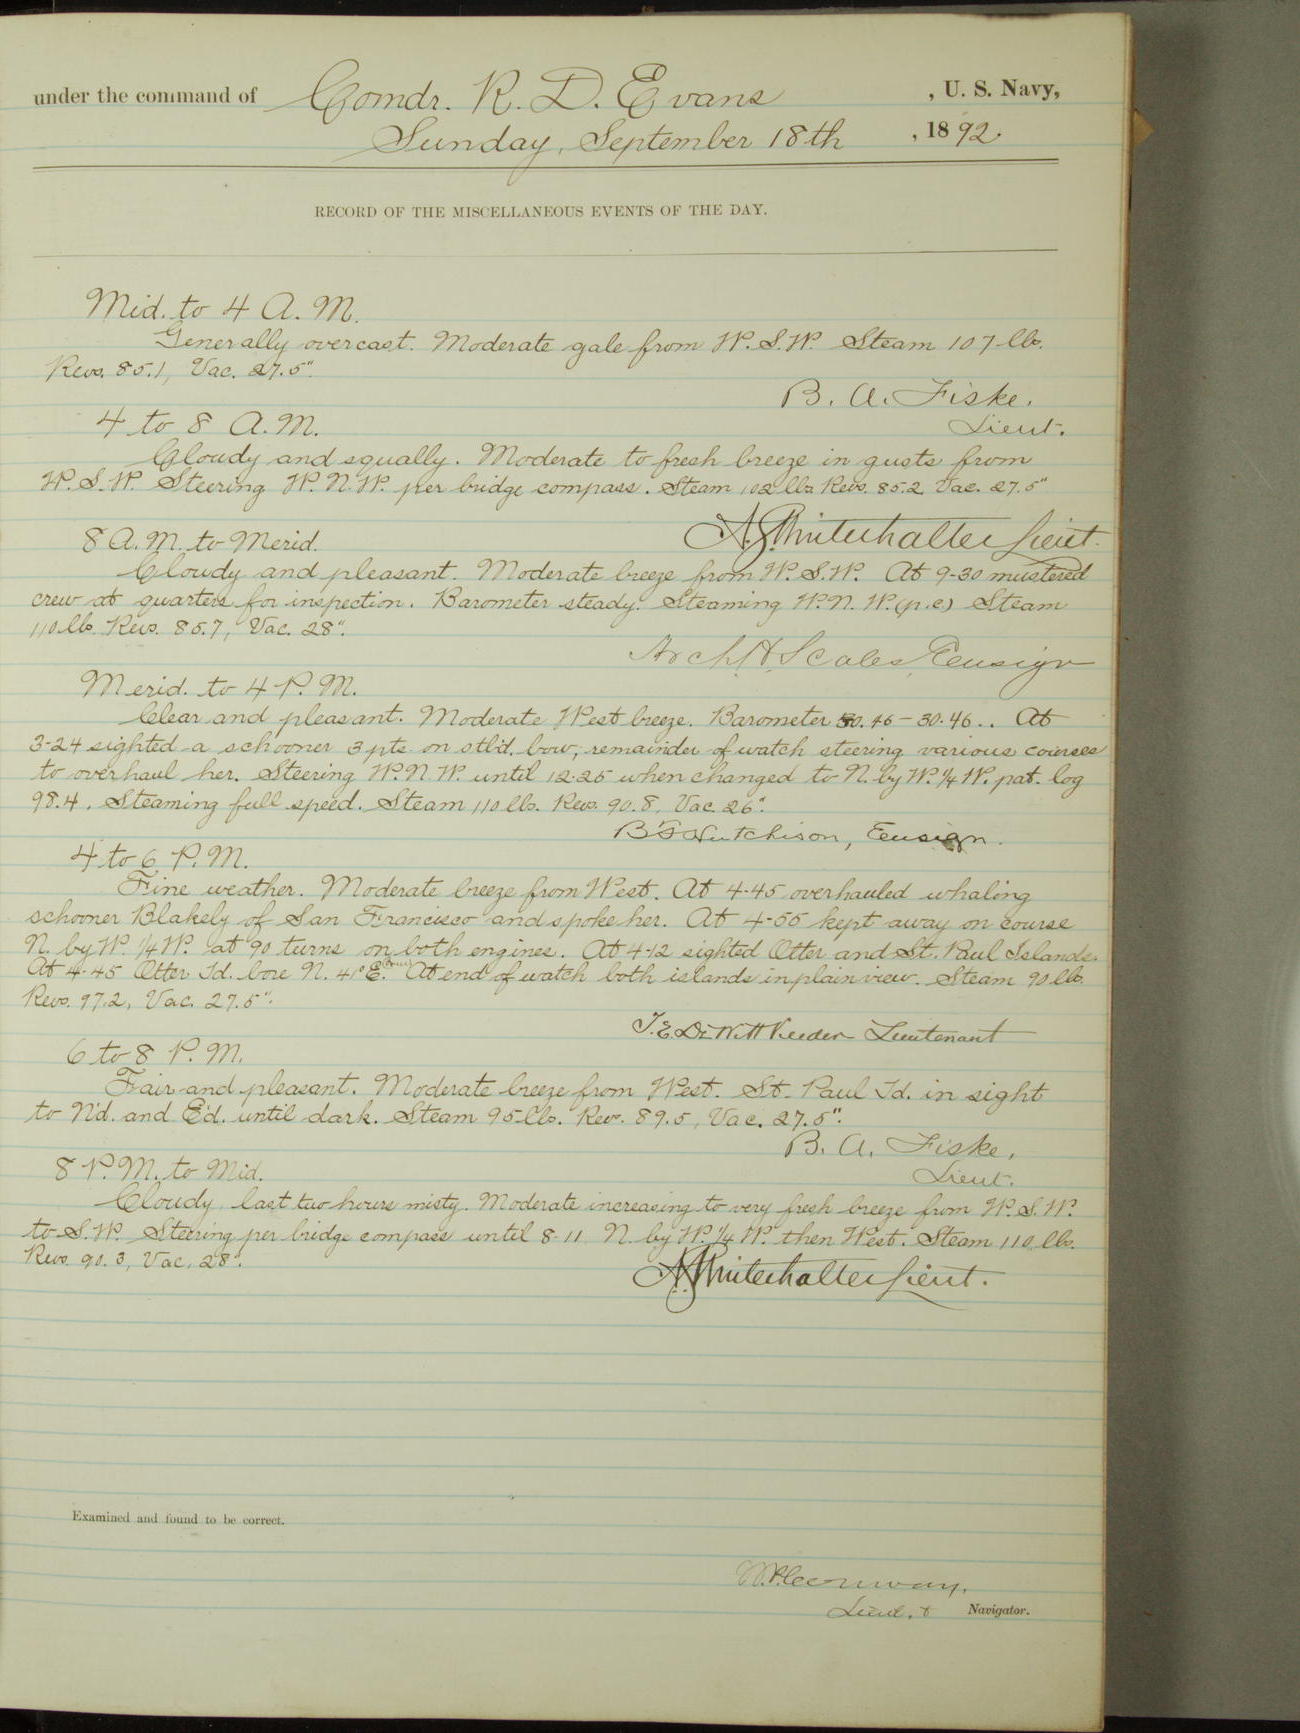 under the command of Comdr. R. D. Evans , U. S. Navy,
Sunday, September 18th , 1892.
RECORD OF THE MISCELLANEOUS EVENTS OF THE DAY.
Mid. to 4 A. M.
Generally overcast. Moderate gale from W. S. W. Steam 107 lbs.
Revs. 85.1, Vac. 27.5".
B. A. Fiske,
Lieut.
4 to 8 A. M.
Cloudy and squally. Moderate to fresh breeze in gusts from
W. S. W. Steering W. N. W. per bridge compass. Steam 102 lbs Revs. 85.2 Vac. 27.5"
A. G. Winterhalter Lieut.
8 A. M. to Merid.
Cloudy and pleasant. Moderate breeze from W. S. W. At 9-30 mustered
crew at quarters for inspection. Barometer steady. Steaming W. N. W. (p.c.) Steam
110 lbs. Revs. 85.7, Vac. 28".
Arch. H. Scales, Ensign
Merid. to 4 P. M.
Clear and pleasant. Moderate West breeze. Barometer 30.46 - 30.46.. At
3-24 sighted a schooner 3 pts on stb'd. bow, remainder of watch steering various courses
to overhaul her. Steering W. N. W. until 12-25 when changed to N. by W. 1/4 W. pat. log
98.4. Steaming full speed. Steam 110 lbs. Revs. 90.8, Vac. 26".
B. F. Hutchison, Ensign.
4 to 6 P. M.
Fine weather. Moderate breeze from West. At 4-45 overhauled whaling
schooner Blakely of San Francisco and spoke her. At 4-55 kept away on course
N. by W. 1/4 W. at 90 turns on both engines. At 4-12 sighted Otter and St. Paul Islands.
At 4-45 Otter Id. bore N. 41° E. At end of watch both islands in plain view. Steam 90 lbs.
Revs. 97.2, Vac. 27.5".
T. E. DeWitt Veeder Lieutenant
6 to 8 P. M.
Fair and pleasant. Moderate breeze from West. St. Paul Id. in sight
to N'd. and E'd. until dark. Steam 95 lbs. Rev. 89.5, Vac. 27.5".
B. A. Fiske,
Lieut.
8 P. M. to Mid.
Cloudy, last two hours misty. Moderate increasing to very fresh breeze from W. S. W.
to S. W. Steering per bridge compass until 8-11 N. by W. 1/4 W. then West. Steam 110 lbs.
Revs. 90.3, Vac. 28".
A. G. Winterhalter Lieut.
Examined and found to be correct.
W. P. Conway,
Lieut. Navigator.